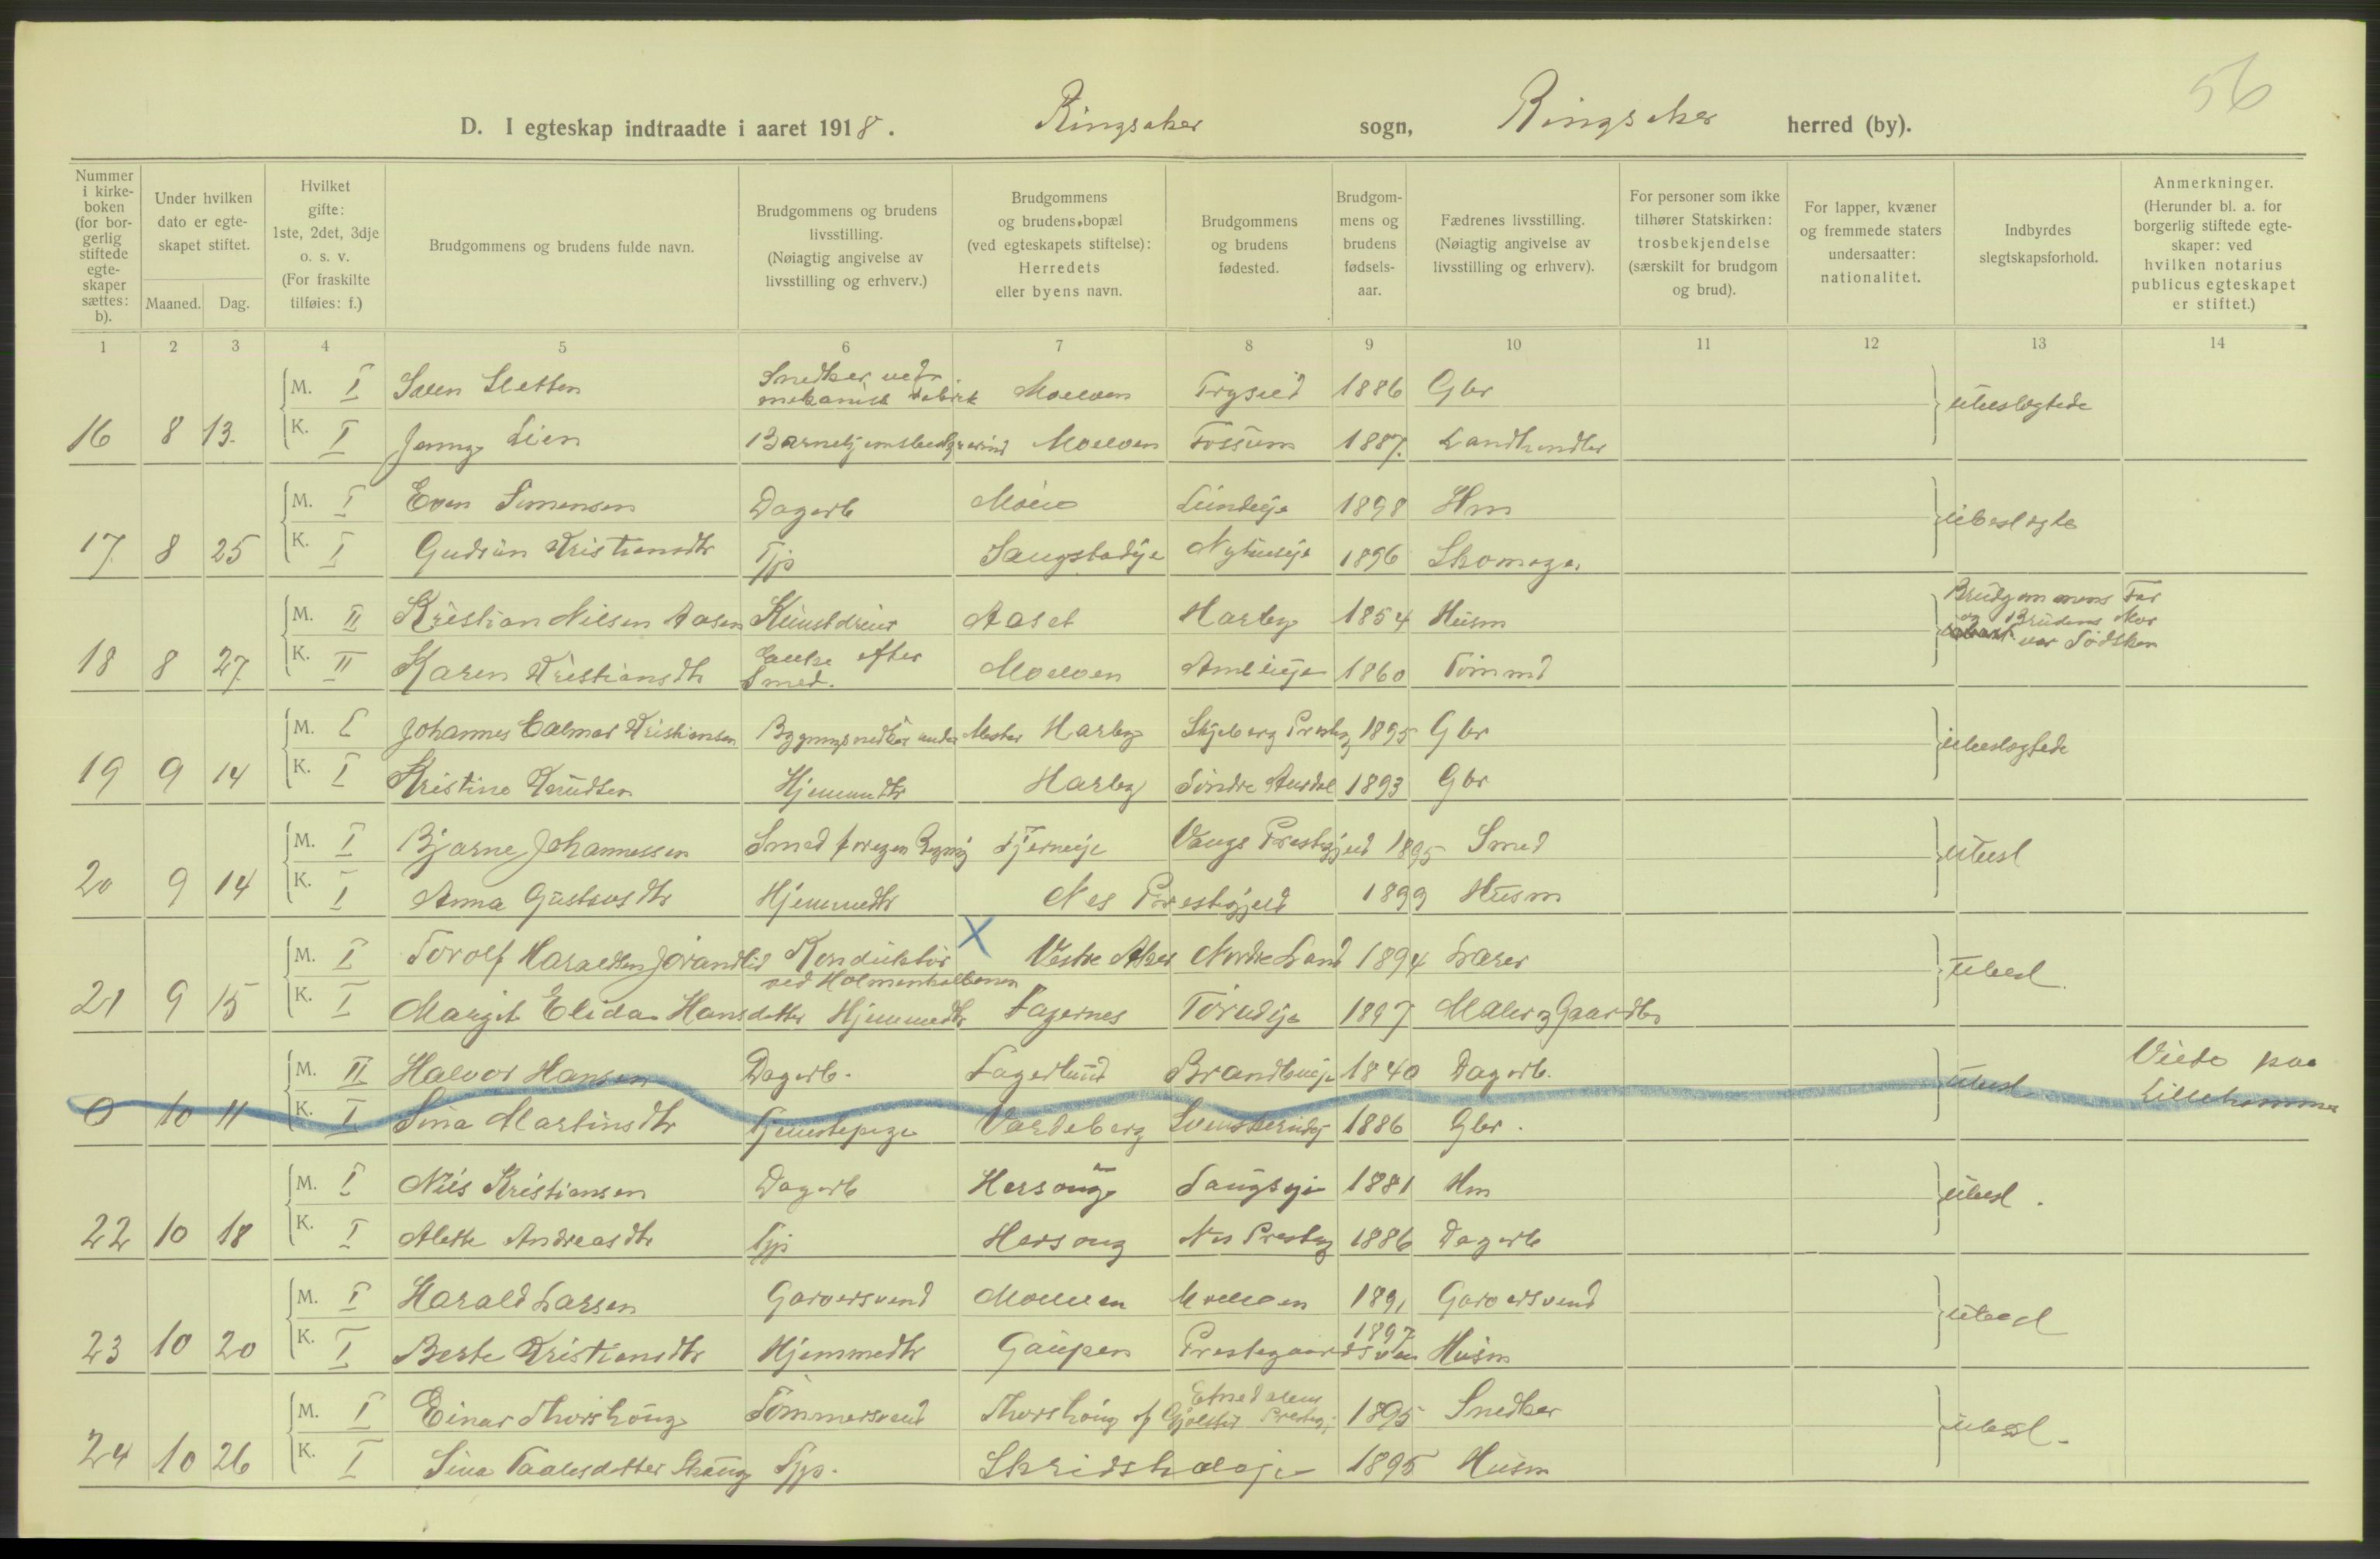 56
D. I egteskap indtraadte i aaret 1918. Ringsaker sogn, Ringsaker herred (by).
Nummer i kirke-boken (for bor-gerlig stiftede egte-skaper sættes: b).
Under hvilken dato er egte-skapet stiftet.
Maaned. Dag.
Hvilket gifte: 1ste, 2det, 3dje o. s. v. (For fraskilte tilføies: f.)
Brudgommens og brudens fulde navn.
Brudgommens og brudens livsstilling. (Nøiagtig angivelse av livsstilling og erhverv.)
Brudgommens og brudens bopæl (ved egteskapets stiftelse): Herredets eller byens navn.
Brudgommens og brudens fødested.
Brudgom-mens og brudens fødsels-aar.
Fædrenes livsstilling. (Nøiagtig angivelse av livsstilling og erhverv).
For personer som ikke tilhører Statskirken: trosbekjendelse (særskilt for brudgom og brud).
For lapper, kvæner og fremmede staters undersaatter: nationalitet.
Indbyrdes slegtskapsforhold.
Anmerkninger. (Herunder bl. a. for borgerlig stiftede egte-skaper: ved hvilken notarius publicus egteskapet er stiftet.)
1 2 3 4 5 6 7 8 9 10 11 12 13 14
M. I Sven Sletten Snedker ved mekanisk Fabrik Moelven Trysild 1886 Gbr ubeslegtede
16 8 13. K. I Jenny Lien Moelven Fossum 1887. Landhandler
M. I Even Simensen Dagarb Moen 1898 Hm ubeslegte
17 8 25 K. I Gudrun Kristiansdtr Tjp 1896 Skomager
M. II Kristian Nilsen Aasen Kunstdreier Aaset Harby 1854 Husm Brudgommens Far og Brudens Mor var Södsken
18 8 27 K. II Karen Kristiansdtr Enke efter Smed. Moelven 1860 Tömmd
M. I Johannes Hjalmar Kristiansen Mester Harby Skjeberg Prestg 1895 Gbr ubeslegtede
19 9 14 K. I Kristine Knudsen Hjemmedtr Harby Söndre Aurdal 1893 Gbr
M. I Bjarne Johannessen Smed Tjerneije Vangs Prestegjeld 1895 Smed ubesl
20 9 14 K. I Anna Gustavsdtr Hjemmedtr Nes Prestegjeld 1899 Husm
M. I Torolf Haraldsen Jörandlid Konduktör ved Holmenkolbanen X Vestre Aker Nordre Land 1894 Lærer ubesl.
21 9 15 K. I Margit Elida Hansdatter Hjemmedtr Fagernes 1897 Maler & Gaardbr
M. II Halvor Hansen Dagarb. Fagerlund 1840 Dagarb. ubesl. Viede paa Lillehammer
0 10 11 K. I Sina Martinsdtr Tjenestepige Vardeberg 1886 Gbr.
M. I Nils Kristiansen Dagarb Hersoug 1881 Hm ubesl.
22 10 18 K. I Alette Andreasdtr Tjp Hersoug Nes Prestg 1886 Dagarb
M. I Harald Larsen Garversvend Moelven Moelven 1891 Garversvend ubesl
23 10 20 K. I Berte Kristiansdtr Hjemmedtr Gaupen Prestegaardsvea 1897 Husm
M. I Einar Thorshoug Tömmersvend Thorshoug Etnedalens Prestegj 1895 Snedker ubesl.
24 10 26 K. I Sina Paalsdatter Skaug Tjp. 1895 Husm